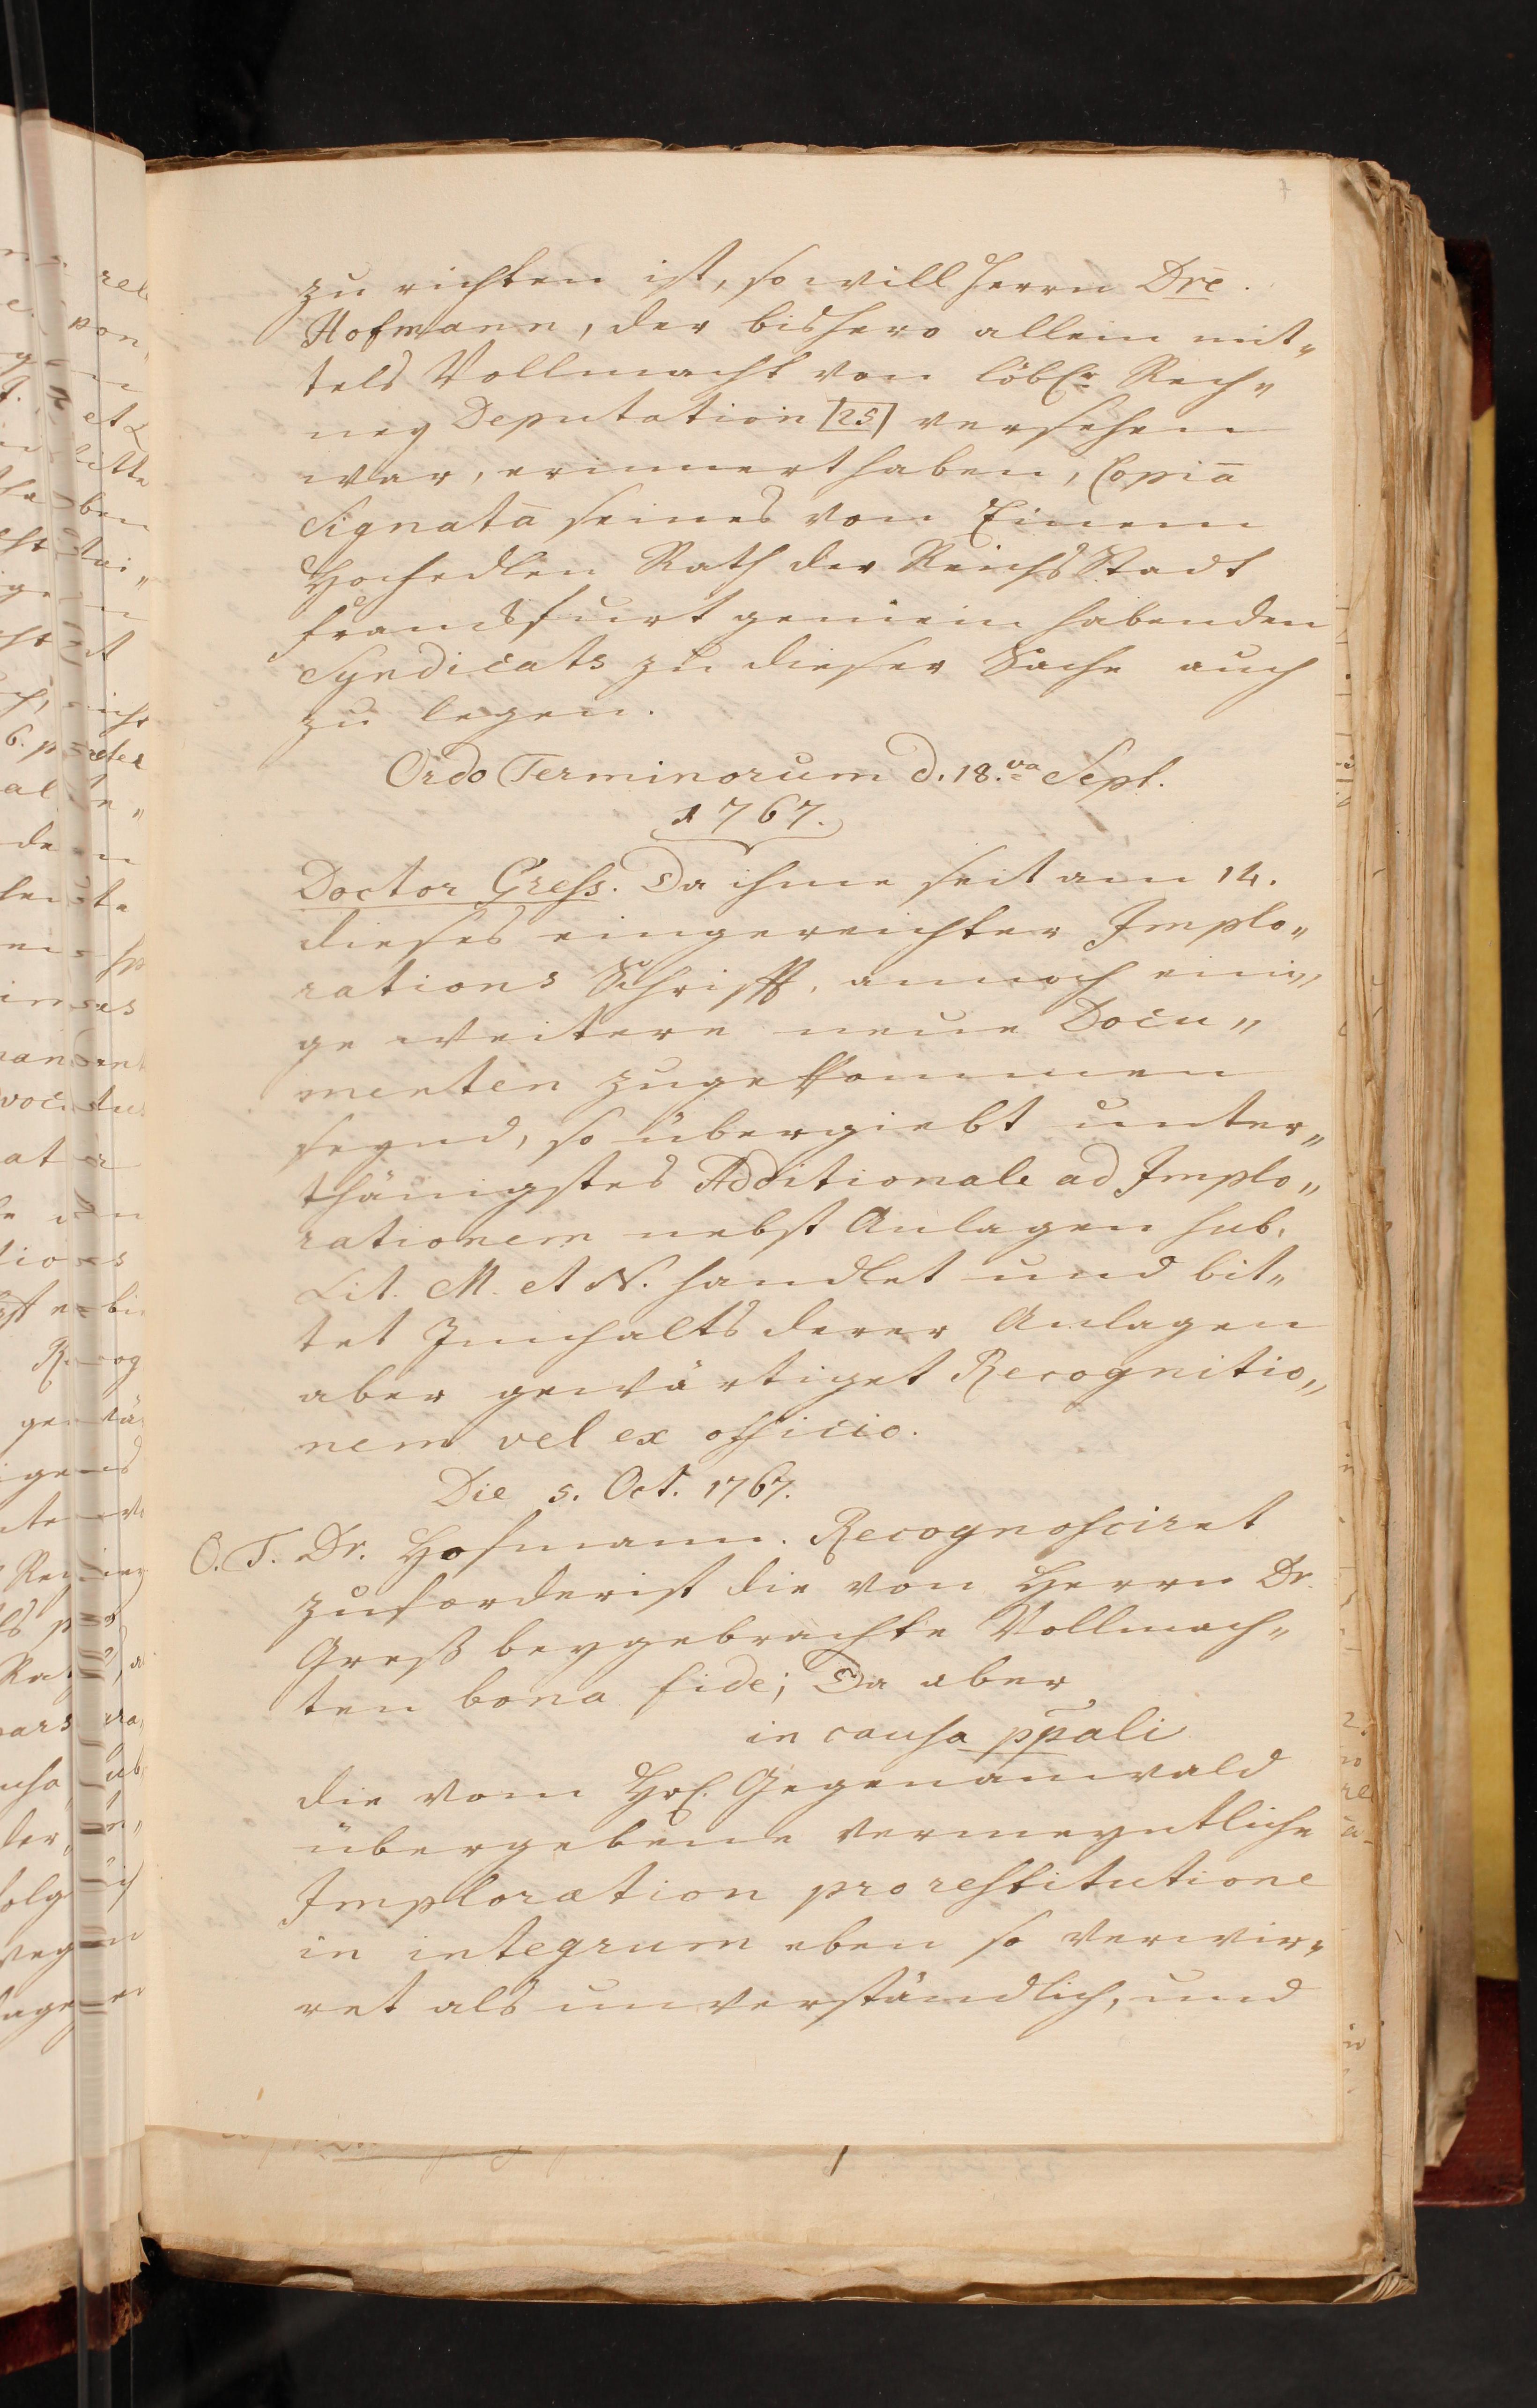 zu richten ist, so will Herrn Drē.
Hofmann, der bishero allein mit„
tels Vollmacht von löbl.r Rech„
ney Deputation [25] versehen
war, erinnert haben, Copiā
Signatā seines von Einem
Hochedlen Rath der ReichsStadt
Franckfurt gemein habenden
Syndicats zu dieser Sache auch
zu legen.
Ordo Terminorum d. 18.va Sept.
1767.
Doctor Gress. Da ihme seit am 14.
dieses eingereichter Implo„
rations Schrifft, annoch eini„
ge weitere neue Docu„
menten zugekommen
seynd, so übergiebt unter„
thänigstes Additionale ad Implo„
rationem nebst Anlagen sub.
Lit. M. et N. handlet und bit„
tet Innhalts derer Anlagen
aber gewärtiget Recognitio„
nem vel ex officio.
Die 5. Oct. 1767.
O. T. Dr. Hofmann. Recognosciret
zuforderist die von Herrn Dr.
Greß beygebrachte Vollmach„
ten bona fide; Da aber
in causa ppali
die vom Hrl. Gegenanwald
übergebene vermeyntliche
Imploration pro restitutione
in integrum eben so verwir„
ret als unverständlich, und